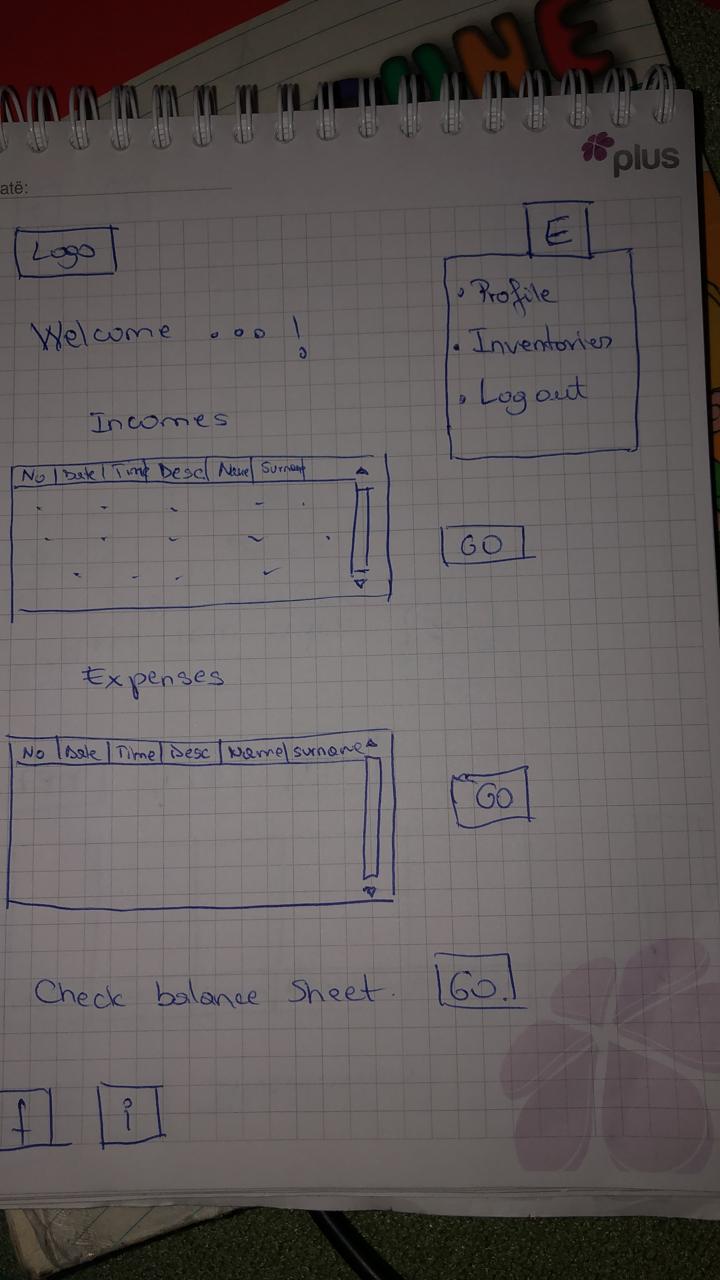 NE
plus
atë:
Logo
E
• Profile
Welcome ... !
• Inventories
• Log out
Incomes
No | Date | Time | Desc | Name | Surname
GO
Expenses
No | Date | Time | Desc | Name | surname
GO
Check balance Sheet.
GO.
f
i